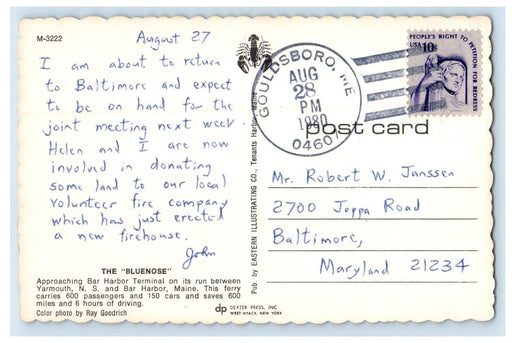 M-3222
August 27
I am about to return
to Baltimore and expect
to be on hand for the
joint meeting next week.
Helen and I are now
involved in donating
some land to our local
volunteer fire company
which has just erected
a new firehouse.
John
THE "BLUENOSE"
Approaching Bar Harbor Terminal on its run between
Yarmouth, N. S. and Bar Harbor, Maine. This ferry
carries 600 passengers and 150 cars and saves 600
miles and 6 hours of driving.
Color photo by Ray Goodrich
Pub. by EASTERN ILLUSTRATING CO., Tenants Harbor, Maine
dp DEXTER PRESS, INC.
WEST NYACK, NEW YORK
GOULDSBORO, ME
AUG
28
PM
1980
04607
PEOPLE'S RIGHT TO PETITION FOR REDRESS
USA 10c
post card
Mr. Robert W. Janssen
2700 Joppa Road
Baltimore,
Maryland 21234